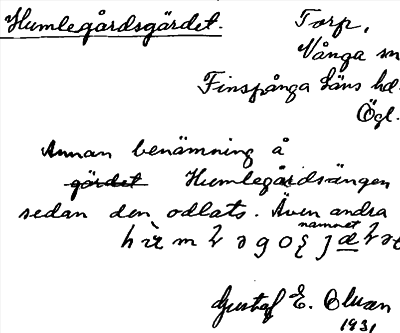 Humlegårdsgärdet. Torp,
Vånga sn
Finspånga läns hd.
Ögl.
Annan benämning å
gärdet Humlegårdsängen
sedan den odlats. Även andra
namnet
Gustaf E. Olsson
1931